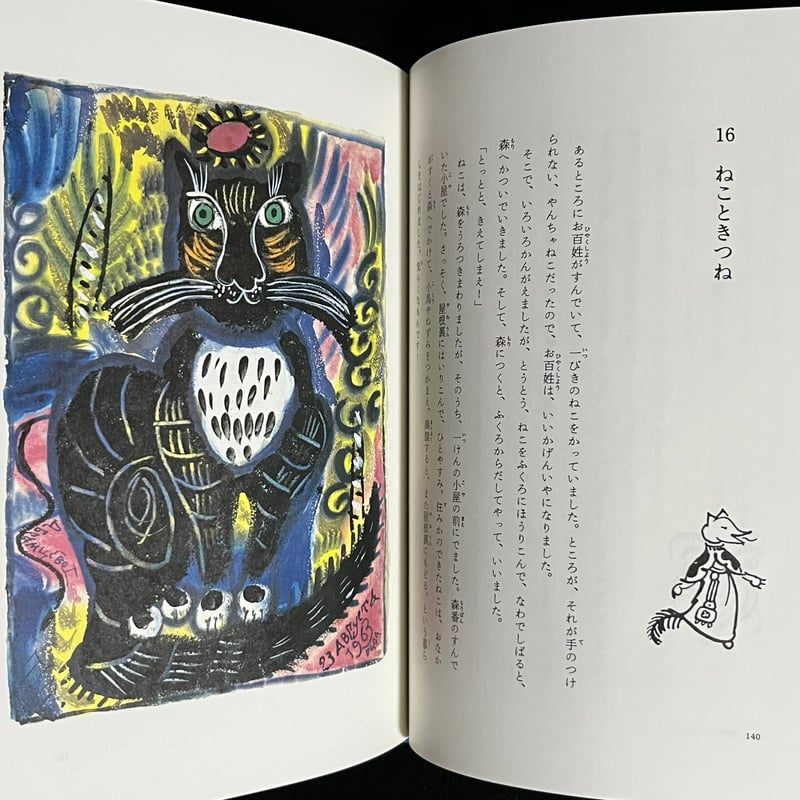 16 ねこときつね
あるところにお百姓がすんでいて、一ぴきのねこをかっていました。ところが、それが手のつけ
られない、やんちゃねこだったので、お百姓は、いいかげんいやになりました。
そこで、いろいろかんがえましたが、とうとう、ねこをふくろにほうりこんで、なわでしばると、
森へかついでいきました。そして、森につくと、ふくろからだしてやって、いいました。
「とっとと、きえてしまえ！」
ねこは、森をうろつきまわりましたが、そのうち、一けんの小屋の前にでました。森番のすんで
いた小屋でした。さっそく、屋根裏にはいりこんで、ひとやすみ。住みかのできたねこは、おなか
がすくと森へでかけて、小鳥やねずみをつかまえ、満腹すると、また屋根裏にもどる、という暮ら
しをはじめました。
140
23 АВГУСТА
196